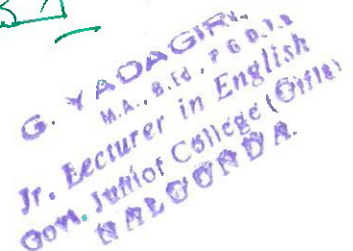 G. YADAGIRI,
M.A., B.Ed., P G D.T.E
Jr. Lecturer in English
Govt. Junior College (Girls)
NALGONDA.